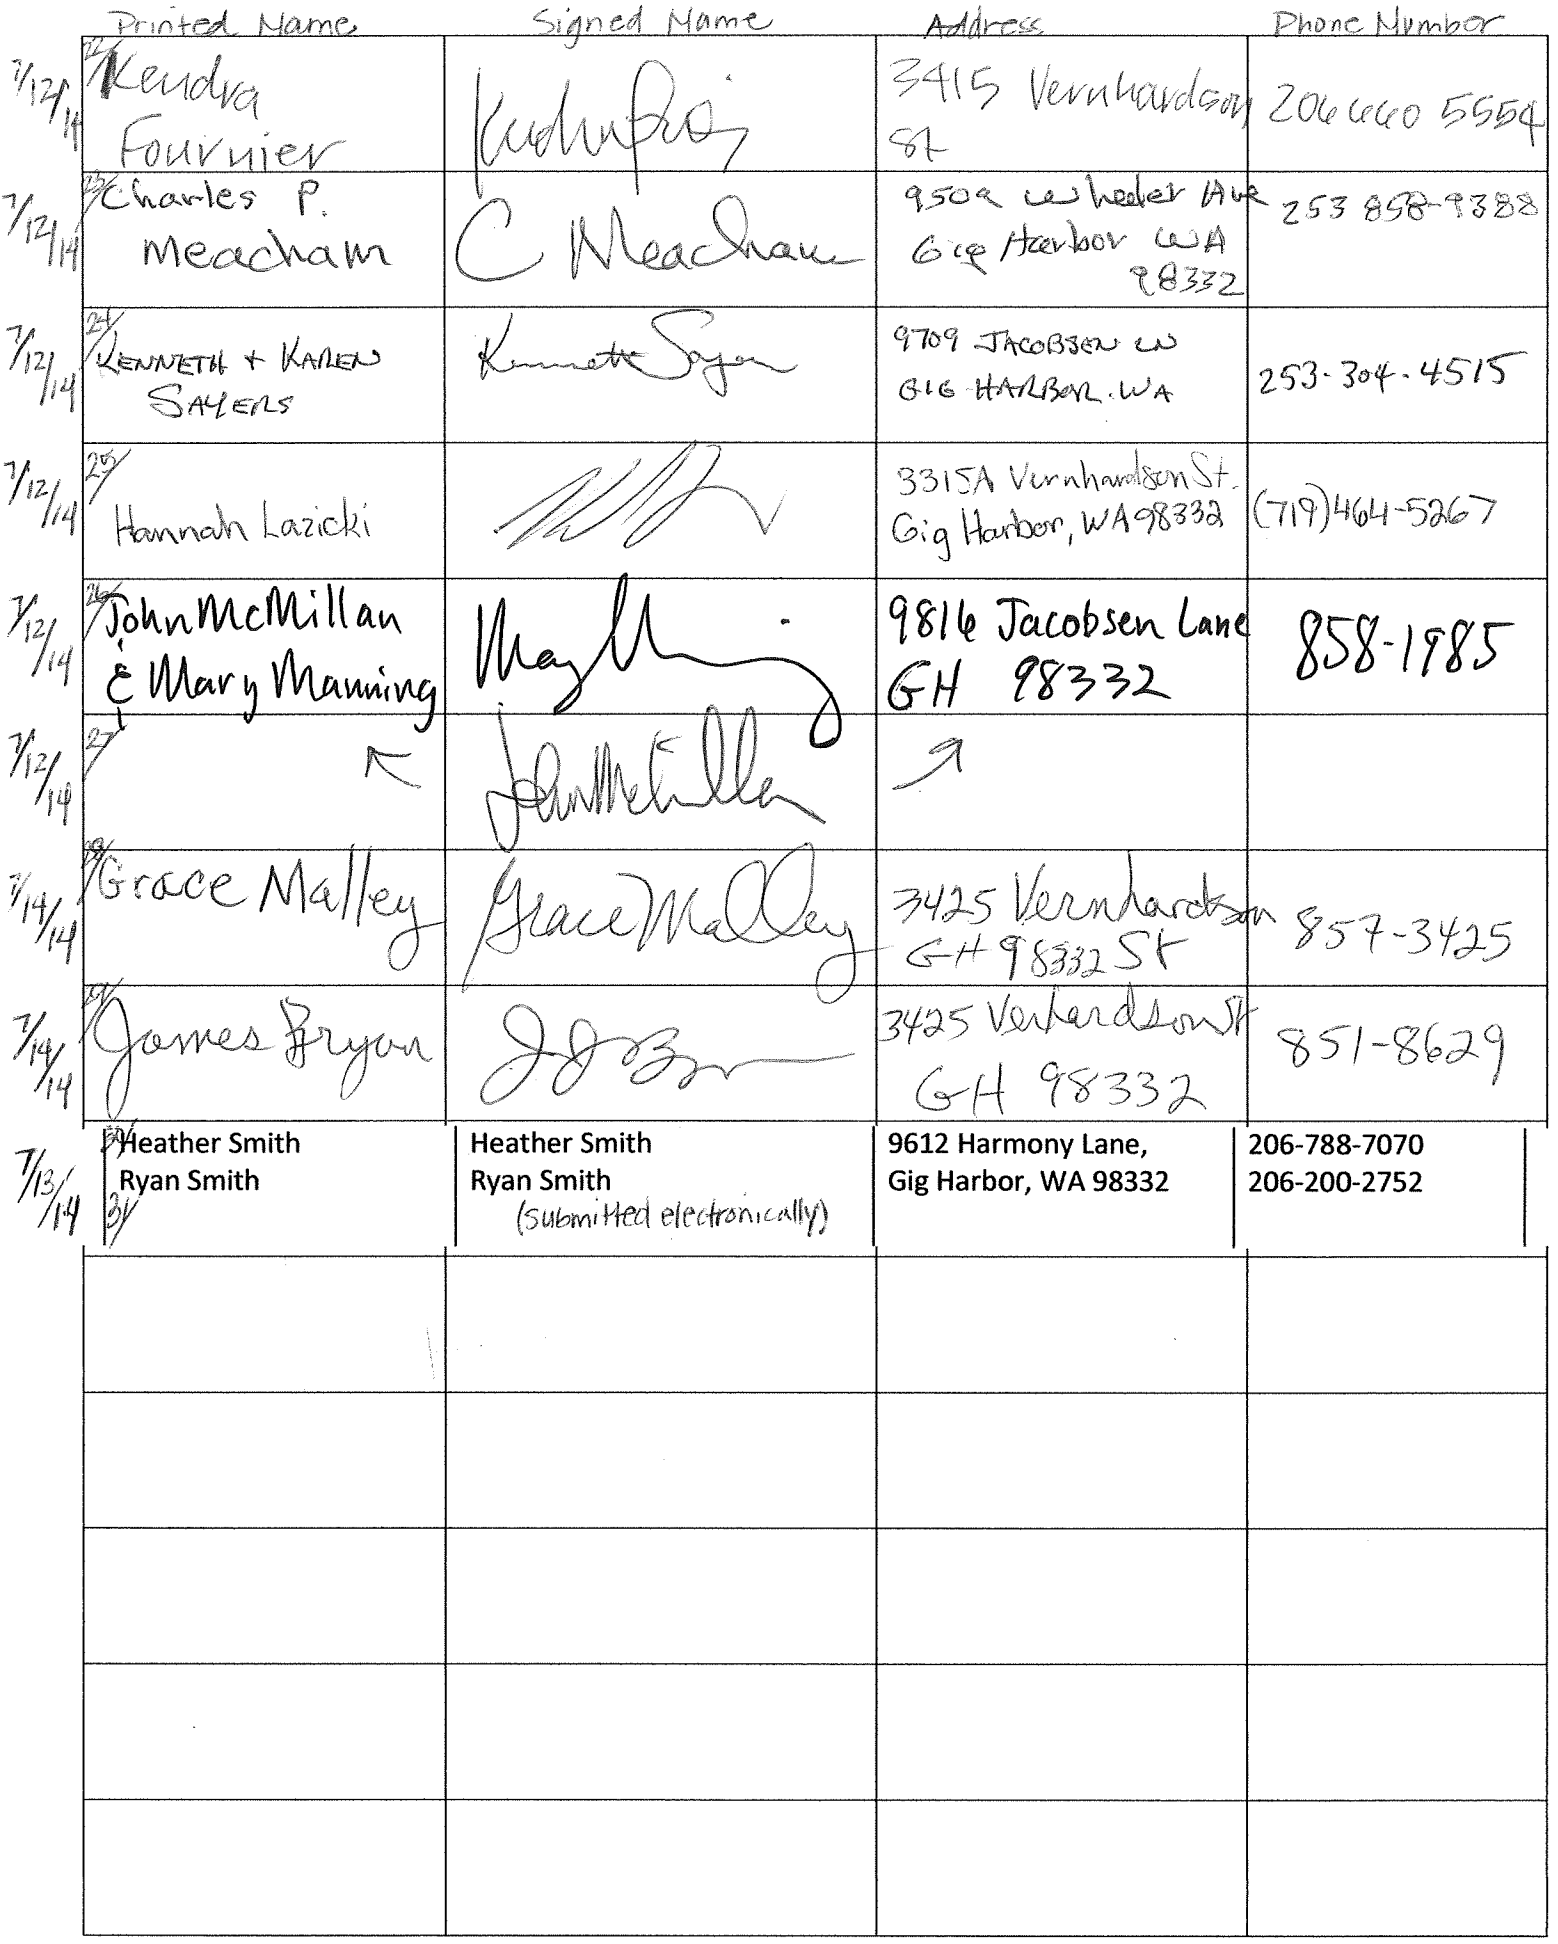 Printed Name Signed Name Address Phone Number
7/12/14 22/ Kendra Fournier 3415 Vernhardson St 206 660 5554
7/12/14 23/ Charles P. Meacham C Meacham 9509 Wheeler Ave Gig Harbor WA 98332 253 858-9388
7/12/14 24/ KENNETH + KAREN SAYERS Kenneth Sayers 9709 JACOBSEN LN GIG HARBOR. WA 253-304-4515
7/12/14 25/ Hannah Lazicki 3315A Vernhardson St. Gig Harbor, WA 98332 (719)464-5267
7/12/14 26/ John McMillan & Mary Manning Mary Manning 9816 Jacobsen Lane GH 98332 858-1985
7/12/14 27/ ↖ John McMillan ↗
7/14/14 28/ Grace Malley Grace Malley 3425 Vernhardson St GH 98332 857-3425
7/14/14 29/ James Bryan 3425 Verhardson St GH 98332 851-8629
7/13/14 30/ Heather Smith Heather Smith 9612 Harmony Lane, 206-788-7070
Ryan Smith Ryan Smith Gig Harbor, WA 98332 206-200-2752
31/ (submitted electronically)